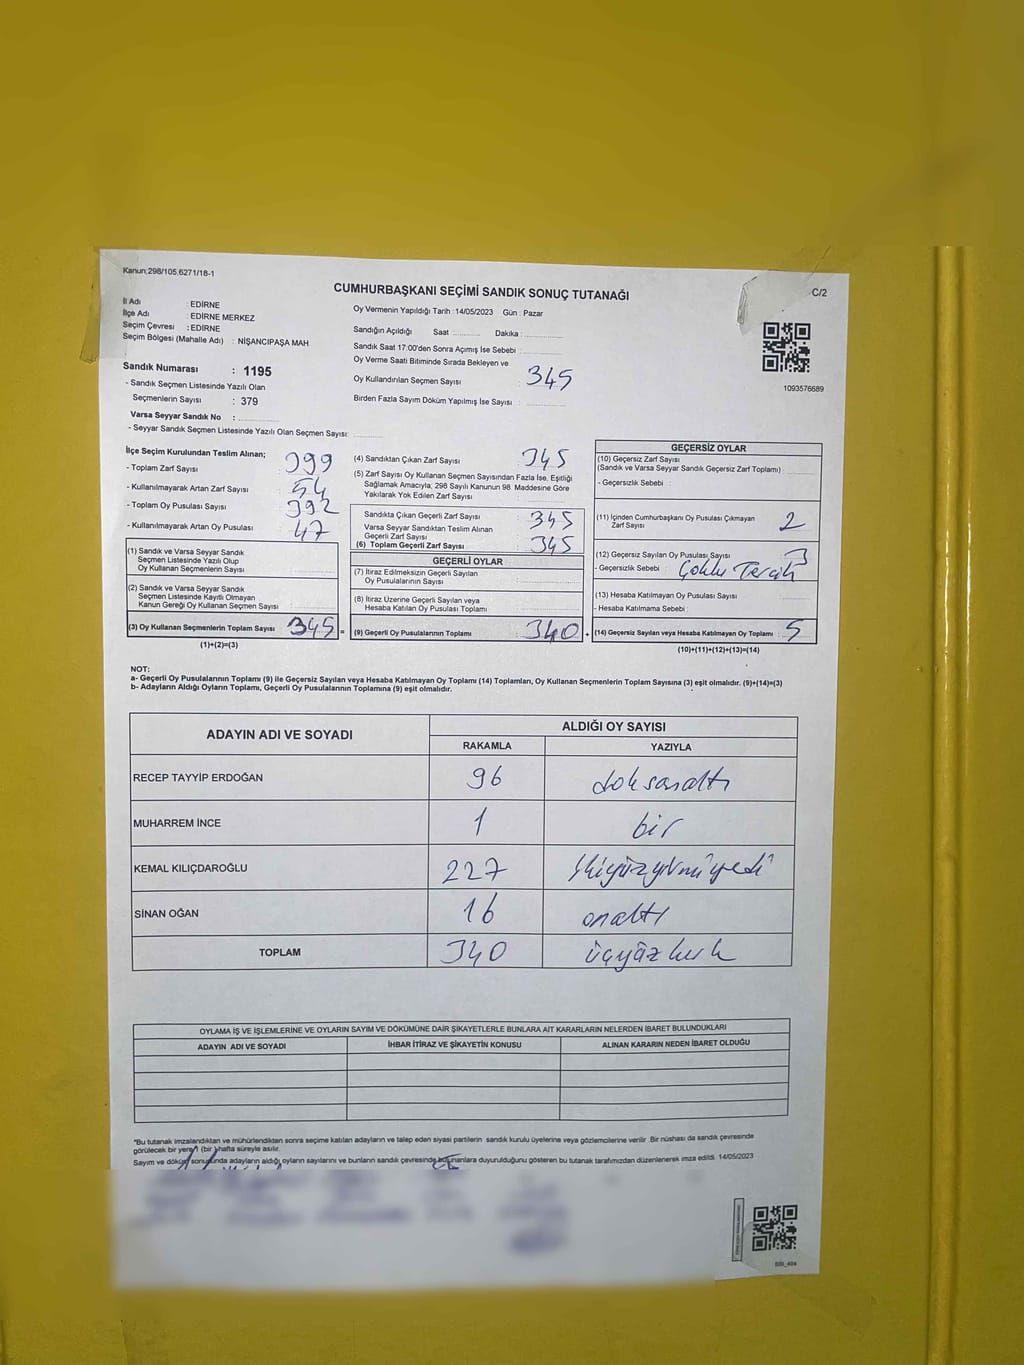 Kanun;298/105,6271/18-1
CUMHURBAŞKANI SEÇİMİ SANDIK SONUÇ TUTANAĞI
C/2
İl Adı : EDİRNE
İlçe Adı : EDİRNE MERKEZ
Seçim Çevresi : EDİRNE
Seçim Bölgesi (Mahalle Adı) : NİŞANCIPAŞA MAH
Sandık Numarası : 1195
- Sandık Seçmen Listesinde Yazılı Olan
Seçmenlerin Sayısı : 379
Varsa Seyyar Sandık No :
- Seyyar Sandık Seçmen Listesinde Yazılı Olan Seçmen Sayısı:
Oy Vermenin Yapıldığı Tarih :14/05/2023 Gün : Pazar
Sandığın Açıldığı Saat : Dakika :
Sandık Saat 17:00'den Sonra Açımış İse Sebebi :
Oy Verme Saati Bitiminde Sırada Bekleyen ve
Oy Kullandırılan Seçmen Sayısı 345
Birden Fazla Sayım Döküm Yapılmış İse Sayısı :
1093576689
İlçe Seçim Kurulundan Teslim Alınan;
- Toplam Zarf Sayısı 399
- Kullanılmayarak Artan Zarf Sayısı 54
- Toplam Oy Pusulası Sayısı 392
- Kullanılmayarak Artan Oy Pusulası 47
(1) Sandık ve Varsa Seyyar Sandık
Seçmen Listesinde Yazılı Olup
Oy Kullanan Seçmenlerin Sayısı
(2) Sandık ve Varsa Seyyar Sandık
Seçmen Listesinde Kayıtlı Olmayan
Kanun Gereği Oy Kullanan Seçmen Sayısı
(3) Oy Kullanan Seçmenlerin Toplam Sayısı 345 =
(1)+(2)=(3)
(4) Sandıktan Çıkan Zarf Sayısı 345
(5) Zarf Sayısı Oy Kullanan Seçmen Sayısından Fazla İse, Eşitliği
Sağlamak Amacıyla; 298 Sayılı Kanunun 98. Maddesine Göre
Yakılarak Yok Edilen Zarf Sayısı
Sandıkta Çıkan Geçerli Zarf Sayısı 345
Varsa Seyyar Sandıktan Teslim Alınan
Geçerli Zarf Sayısı
(6) Toplam Geçerli Zarf Sayısı 345
GEÇERLİ OYLAR
(7) İtiraz Edilmeksizin Geçerli Sayılan
Oy Pusulalarının Sayısı
(8) İtiraz Üzerine Geçerli Sayılan veya
Hesaba Katılan Oy Pusulası Toplamı
(9) Geçerli Oy Pusulalarının Toplamı 340 +
GEÇERSİZ OYLAR
(10) Geçersiz Zarf Sayısı
(Sandık ve Varsa Seyyar Sandık Geçersiz Zarf Toplamı) :
- Geçersizlik Sebebi :
(11) İçinden Cumhurbaşkanı Oy Pusulası Çıkmayan
Zarf Sayısı 2
(12) Geçersiz Sayılan Oy Pusulası Sayısı 3
- Geçersizlik Sebebi : Çoklu Tercih
(13) Hesaba Katılmayan Oy Pusulası Sayısı
- Hesaba Katılmama Sebebi :
(14) Geçersiz Sayılan veya Hesaba Katılmayan Oy Toplamı : 5
(10)+(11)+(12)+(13)=(14)
NOT:
a- Geçerli Oy Pusulalarının Toplamı (9) ile Geçersiz Sayılan veya Hesaba Katılmayan Oy Toplamı (14) Toplamları, Oy Kullanan Seçmenlerin Toplam Sayısına (3) eşit olmalıdır. (9)+(14)=(3)
b- Adayların Aldığı Oyların Toplamı, Geçerli Oy Pusulalarının Toplamına (9) eşit olmalıdır.
ADAYIN ADI VE SOYADI ALDIĞI OY SAYISI
RAKAMLA YAZIYLA
RECEP TAYYİP ERDOĞAN 96 doksanaltı
MUHARREM İNCE 1 bir
KEMAL KILIÇDAROĞLU 227 ikiyüzyirmiyedi
SİNAN OĞAN 16 onaltı
TOPLAM 340 üçyüzkırk
OYLAMA İŞ VE İŞLEMLERİNE VE OYLARIN SAYIM VE DÖKÜMÜNE DAİR ŞİKAYETLERLE BUNLARA AİT KARARLARIN NELERDEN İBARET BULUNDUKLARI
ADAYIN ADI VE SOYADI İHBAR İTİRAZ VE ŞİKAYETİN KONUSU ALINAN KARARIN NEDEN İBARET OLDUĞU
*Bu tutanak imzalandıktan ve mühürlendikten sonra seçime katılan adayların ve talep eden siyasi partilerin sandık kurulu üyelerine veya gözlemcilerine verilir. Bir nüshası da sandık çevresinde
görülecek bir yere 1 (bir ) hafta süreyle asılır.
Sayım ve döküm sonucunda adayların aldığı oyların sayılarını ve bunların sandık çevresinde bulunanlara duyurulduğunu gösteren bu tutanak tarafımızdan düzenlenerek imza edildi. 14/05/2023